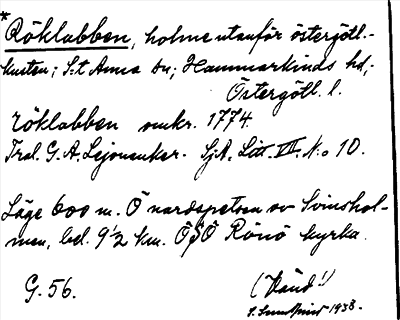 * Röklabben, holme utanför östergötl.-
kusten; S:t Anna sn; Hammarkinds hd,
Östergötl. l.
Röklabben omkr. 1774.
Tral. G. A. Lejonanker. Sj.A. Litt. VII. N:o 10.
Läge 600 m. Ö nordspetsen av Svinshol-
men, bel. 9½ km. ÖSÖ Rönö kyrka.
G. 56.
1938.